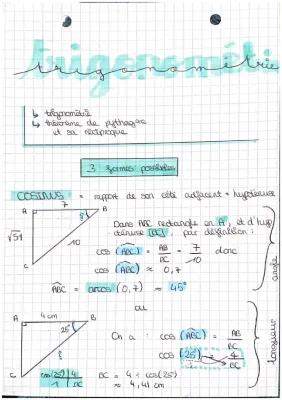 trigonométrie
trigonométrie
↳ trigonométrie
↳ théorème de pythagore
et sa réciproque
3 formes possibles
COSINUS = rapport de son côté adjacent ÷ hypoténuse
A 7 B
√51 ? 10
C
Dans ABC rectangle en A, et d'hyp
oténuse [BC], par définition :
cos (ABC) = AB/BC = 7/10 donc
cos (ABC) ≈ 0,7
ABC = arccos (0,7) ≈ 45°
angle
ou
A 4 cm B
25° ?
C
On a : cos (ABC) = AB/BC
cos (25) = 4/BC
cos(25) 4
1 BC
BC = 4 ÷ cos(25)
≈ 4,41 cm
longueur